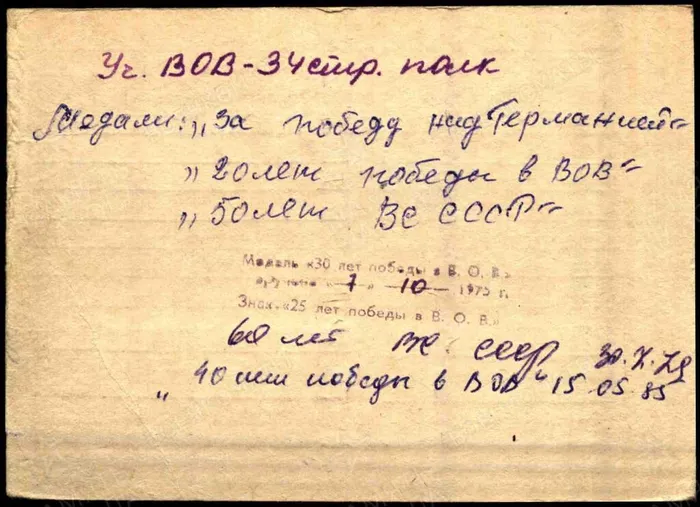 Уч. ВОВ - 34 стр. полк
Медали: „За победу над Германией"
„20 лет победы в ВОВ"
„50 лет ВС СССР"
Медаль «30 лет победы в В. О. В.»
вручена «7» 10 1975 г.
Знак «25 лет победы в В. О. В.»
60 лет ВС СССР 30.X.79
„40 лет победы в ВОВ" 15.05.85